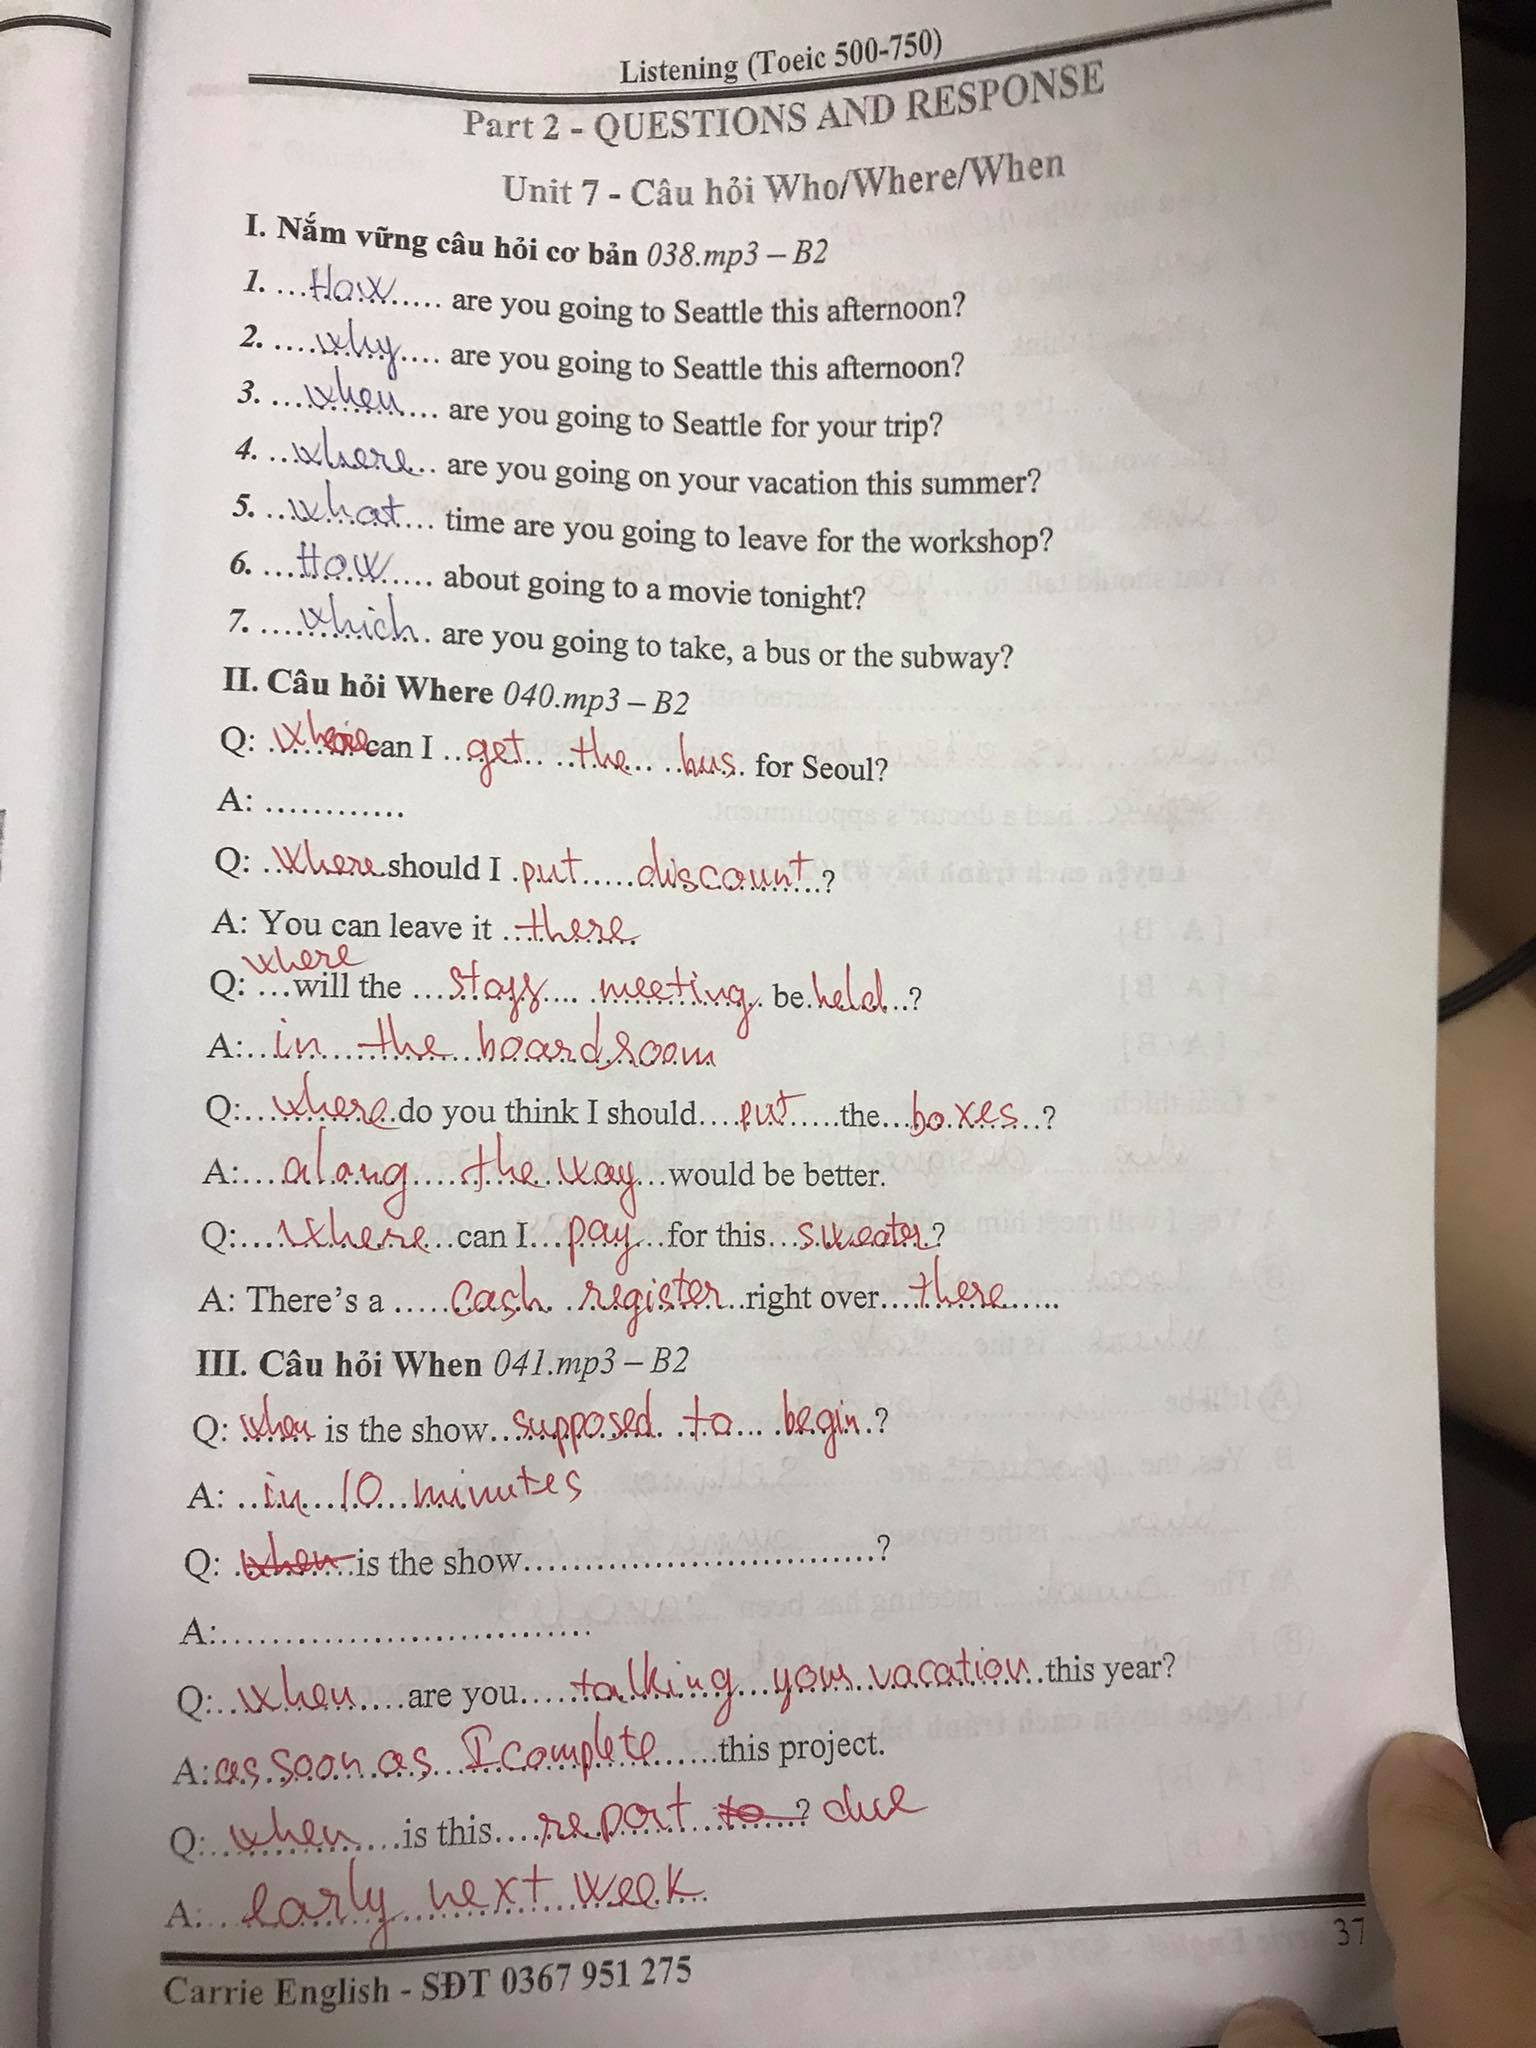 Listening (Toeic 500-750)
Part 2 - QUESTIONS AND RESPONSE
Unit 7 - Câu hỏi Who/Where/When
I. Nắm vững câu hỏi cơ bản 038.mp3 – B2
1. ...How...... are you going to Seattle this afternoon?
2. ....why.... are you going to Seattle this afternoon?
3. ...when... are you going to Seattle for your trip?
4. ...where.. are you going on your vacation this summer?
5. ...what... time are you going to leave for the workshop?
6. ...How..... about going to a movie tonight?
7. ....which.. are you going to take, a bus or the subway?
II. Câu hỏi Where 040.mp3 – B2
Q: .where can I ..get.. ..the... ..bus. for Seoul?
A: ............
Q: ..where.should I .put.....discount.?
A: You can leave it ..there.
where
Q: ...will the ...staff.... .meeting. be.held..?
A:..in...the...boardroom
Q:...where.do you think I should....put.....the...boxes..?
A:...along....the..way...would be better.
Q:....where...can I...pay...for this...sweater?
A: There's a .....cash. .register..right over....there.....
III. Câu hỏi When 041.mp3 – B2
Q: when is the show..supposed. .to... .begin.?
A: ..in...10...minutes
Q: .when.is the show................................?
A:................................
Q:..when....are you.....talking...your.vacation..this year?
A:as soon as..I complete......this project.
Q:..when....is this....report to ? due
A:...early next week
37
Carrie English - SĐT 0367 951 275